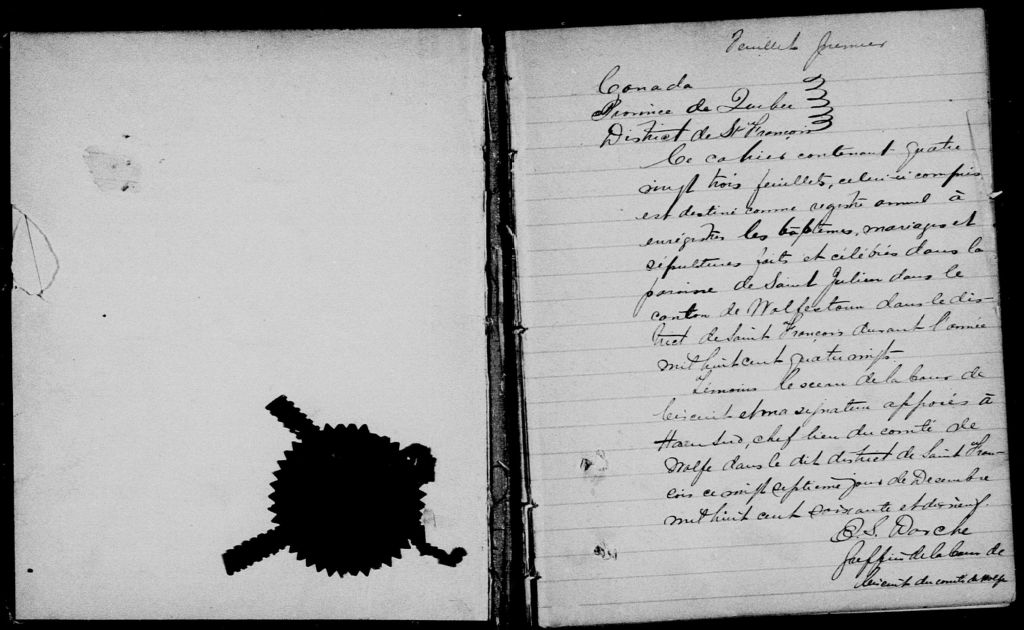 Feuillet premier
Canada
Province de Quebec
District de St François
Ce cahier contenant quatre
vingt trois feuillets, celui-ci compris
est destiné comme registre annuel à
enrégistrer les baptêmes, mariages et
sépultures faits et célébrés dans la
paroisse de Saint Julien dans le
canton de Wolfestown dans le dis-
trict de Saint François durant l'année
mil huit cent quatre vingt
Témoins le sceau de la Cour de
Circuit et ma signature apposés à
Ham Sud, chef lieu du comté de
Wolfe dans le dit district de Saint Fran-
cois ce vingt septieme jour de Decembre
mil huit cent soixante et dix neuf.
Greffier de la Cour de
Circuit du comté de Wolfe